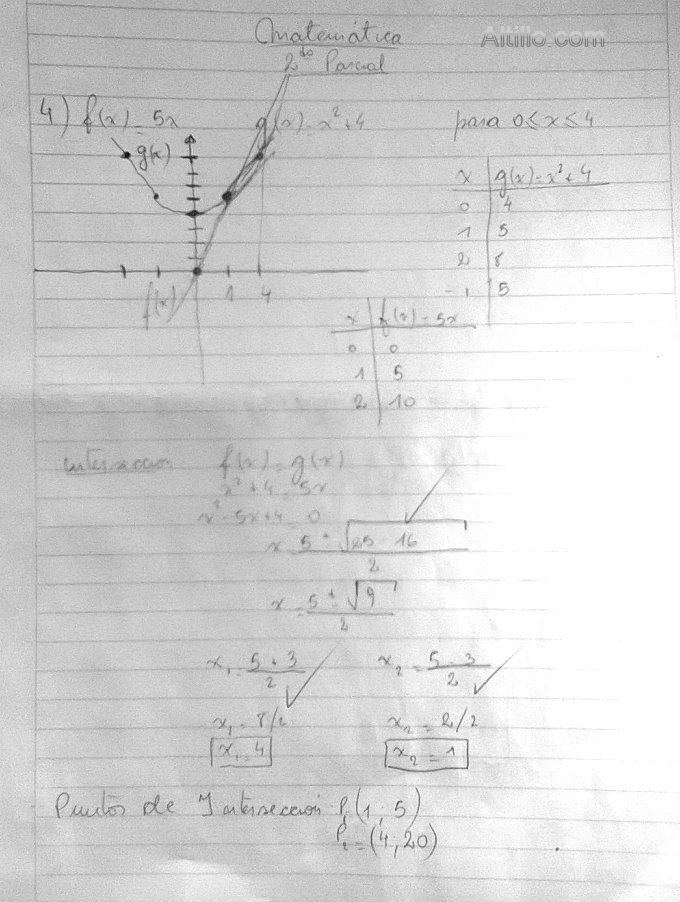 Matemática
Altillo.com
2do Parcial
4) f(x) = 5x g(x) = x² + 4 para 0 ≤ x ≤ 4
g(x)
f(x) 1 4
x g(x) = x² + 4
0 4
1 5
2 8
-1 5
x f(x) = 5x
0 0
1 5
2 10
Interseccion f(x) = g(x)
x² + 4 = 5x
x² - 5x + 4 = 0
x = 5 ± √25 - 16 / 2
x = 5 ± √9 / 2
x₁ = 5 + 3 / 2 x₂ = 5 - 3 / 2
x₁ = 8/2 x₂ = 2/2
x₁ = 4 x₂ = 1
Puntos de Interseccion P₁(1; 5)
P₂ = (4, 20)